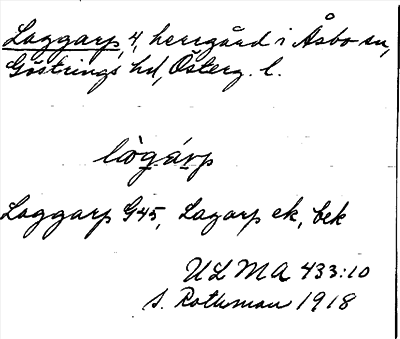 Laggarp, 4, herrgård i Åsbo sn,
Göstrings hd, Österg. l.
lògárp
Laggarp G45, Lagarp ek, bek
ULMA 433:10
S. Rothman 1918